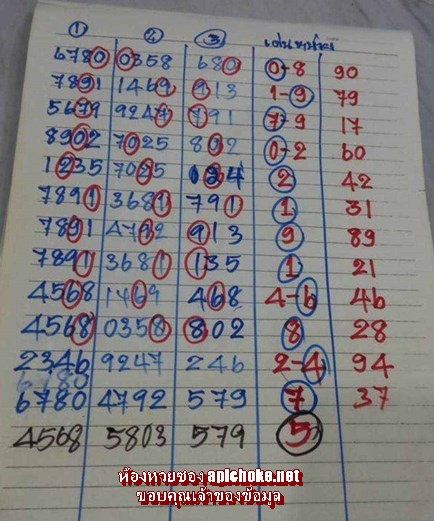 ① ② ③ เด่นหางล่าง
6780 0358 680 0-8 90
7891 1469 913 1-9 79
5679 9247 791 7-9 17
8902 7025 802 0-2 60
1235 7025 124 2 42
7891 3681 791 1 31
7891 4792 913 9 89
7891 3681 135 1 21
4568 1469 468 4-6 46
4568 0358 802 8 28
2346 9247 246 2-4 94
6780
6780 4792 579 7 37
4568 5803 579 5
ห้องหวยซอง apichoke.net
ขอบคุณเจ้าของข้อมูล